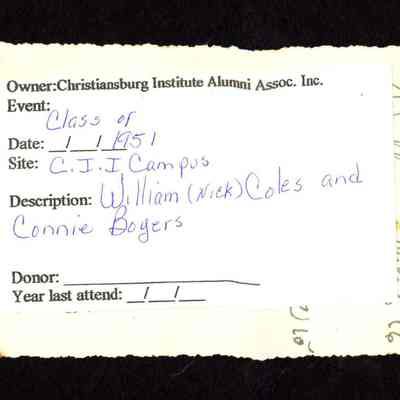 Owner:Christiansburg Institute Alumni Assoc. Inc.
Event:
Class of
Date: __/__/__1951
Site: C.I.I Campus
Description: William (Nick) Coles and
Connie Bogers
Donor: ____________________
Year last attend: __/__/__